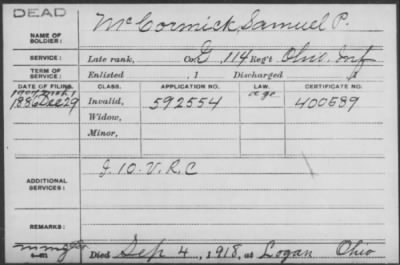 DEAD
NAME OF SOLDIER: McCormick, Samuel P.
SERVICE: Late rank, Co. G, 114 Reg't Ohio Inf
TERM OF SERVICE: Enlisted , 1 Discharged , 1
DATE OF FILING. CLASS. APPLICATION NO. LAW. CERTIFICATE NO.
1907
1886 Dec 29 Invalid, 592554 age 400589
Widow,
Minor,
ADDITIONAL SERVICES: J. 10. V.R.C
REMARKS:
Died Sep 4, 1918, at Logan Ohio